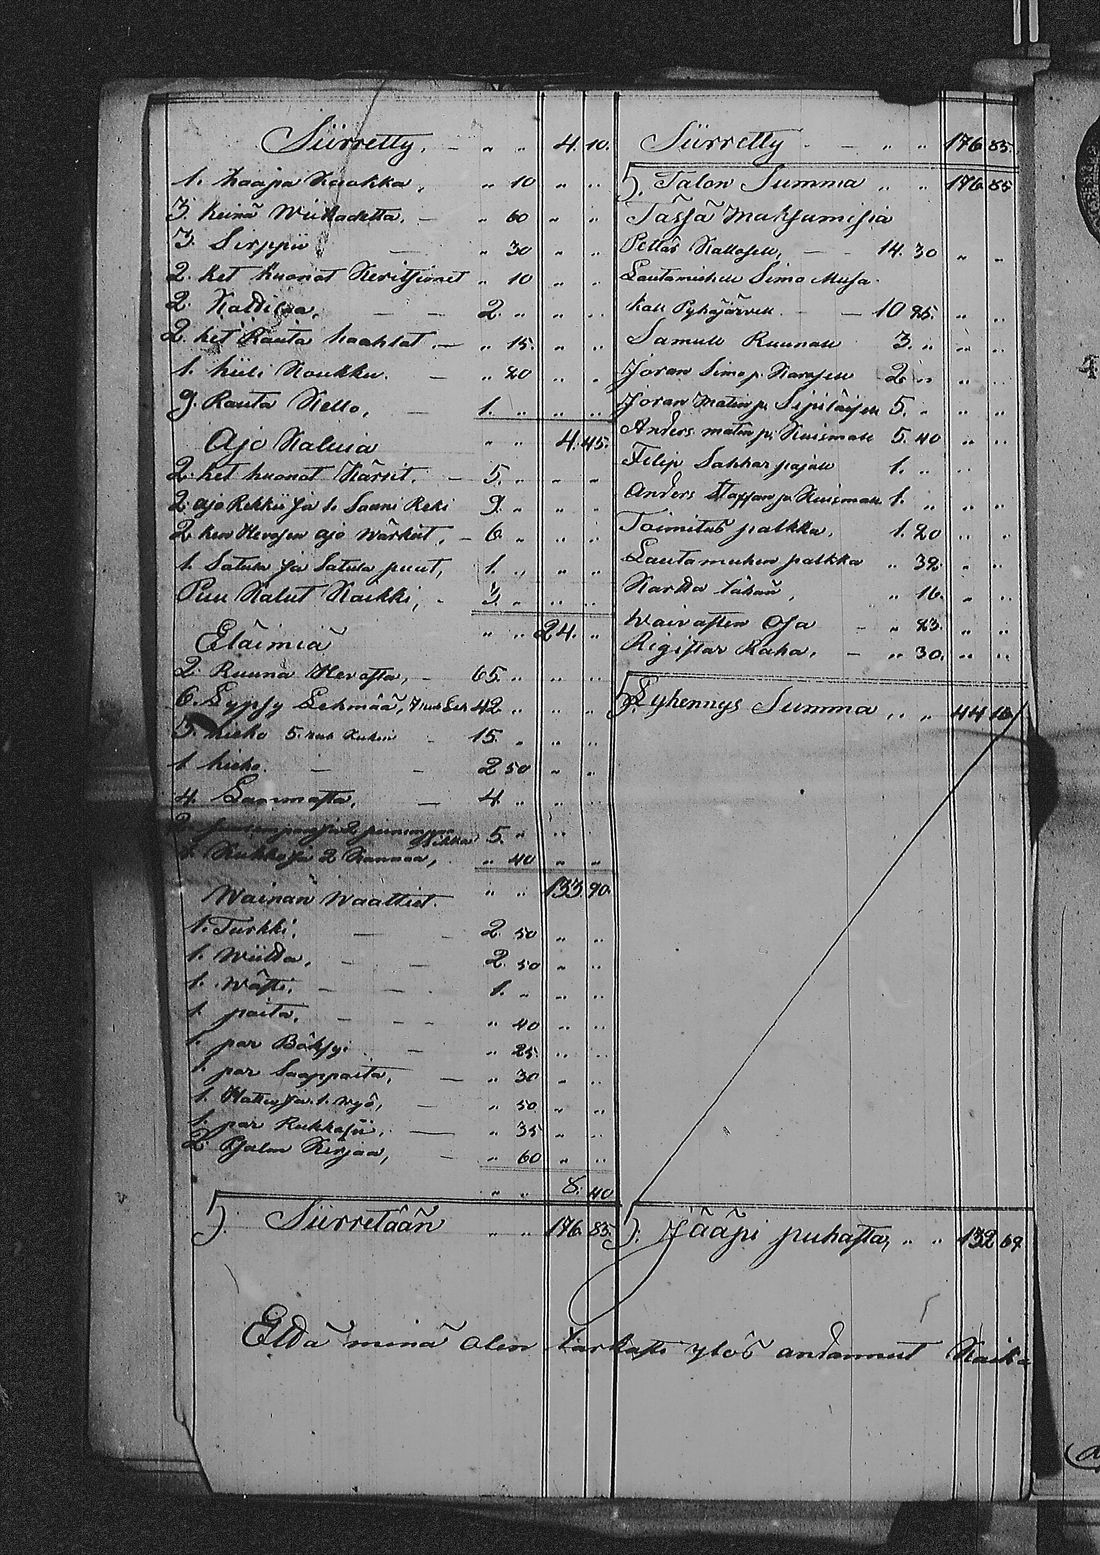 Siirretty, — „ „ 4. 10.
1. haapa Kaakka, „ 10 „ „
3. heinä Wiikadetta, — „ 60 „ „
3. Sirppii „ 30 „ „
2. het huonot Keritsimet „ 10 „ „
2. Kaddilaa, — — 2. „ „ „
2. het Rauta haahlat, — „ 15. „ „
1. hiili Koukku. — „ 20 „ „
9. Rauta Kello, — 1. „ „ „
Ajo Kaluia „ „ 4. 45.
2. het huonot Kärrit. — 5. „ „ „
2. ajo Rekkii ja 1. Saani Reki 9. „ „ „
2. hen Hevosen ajo Wärkit, — 6. „ „ „
1. Satula ja Satula puut, 1. „ „ „
Puu Kalut Kaikki, — 3. „ „ „
Eläimiä „ „ 24. „
2. Ruuna Hevasta, — 65. „ „ „
6. Lypsy Lehmää, 42 „ „ „
5. hieho 5. — 15. „ „ „
1 hieho. — — 2 50 „ „
4. Lammasta, — 4. „ „ „
5. „ „ „
1. Kukko ja 2 Kannaa, „ 40 „ „
Wainan Waattiet. „ „ 133. 90.
1. Turkki, — — 2. 50 „ „
1. Wiitta, — — 2. 50 „ „
1. Wästi, — — 1. „ „ „
1 paita, — — — „ 40 „ „
1. par Böksyi — „ 25 „ „
1. par Saappaita, — „ 30 „ „
1. Hattu ja 1. Wyö, — „ 50 „ „
1. par Rukkasii, — „ 35 „ „
2. Jalan Kirjaa, — „ 60 „ „
„ „ 8. 40
S. Siirretään „ „ 176. 85.
Siirretty — — „ „ 176 85.
S. Talon Summa „ „ 176 85
Tässä Maksumisia
Pettas Kallosell, — — 14. 30 „ „
Lautamiehell Simo Musa-
Kall Pyhäjärvell — — 10 85 „ „
Samull Ruunall 3. „ „ „
Joran Simo p. Karosell 2 „ „ „
Joran Matin p. Sipiläisell 5. „ „ „
Anders Matin p. Kuismall 5. 40 „ „
Filip Sahharpajall 1. „ „ „
Anders Stappan p. Kuismall 1. „ „ „
Toimitus palkka, 1. 20 „ „
Lautamiehen palkka „ 32. „ „
Kartta tähän, „ 16. „ „
Waivasten Osa — „ 83. „ „
Rigistar Raha, — „ 30. „ „
S. Lyhennys Summa „ „ 44 16
S. Jääpi puhasta, „ „ 132 69.
Että minä olen tarkasti ylös andannut Kaik-